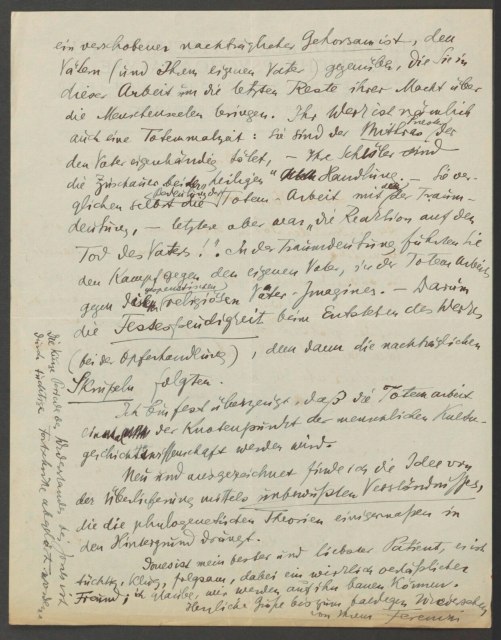 ein verschobener nachträglicher Gehorsam ist, den
Vätern (und Ihrem eigenen Vater) gegenüber, die Sie in
dieser Arbeit um die letzten Reste ihrer Macht über
die Menschenseelen bringen. Ihr Werk ist nämlich
auch eine Totemmalzeit: Sie sind der Mithras priester, der
den Vater eigenhändig tötet, – Ihre Schüler sind
die Zuschauer bei der „heiligen“ Handlung. – Sie ver-
glichen selbst die Bedeutung der Totem-Arbeit mit der Traum-
deutung, – letztere aber war „die Reaktion auf den
Tod des Vaters!“. In der Traumdeutung führten Sie
den Kampf gegen den eigenen Vater, in der Totem Arbeit
gegen die religiösen Vater-Imagines. – Darum
die Festesfreudigkeit beim Entstehen des Werkes
(bei der Opferhandlung), dem dann die nachträglichen
Skrupeln folgten.
Ich bin fest überzeugt, daß die Totem arbeit
einmal der Knotenpunkt der menschlichen Kultur-
geschichtswissenschaft werden wird.
Neu und ausgezeichnet finde ich die Idee von
der Überlieferung mittels unbewußten Verständnisses,
die die phylogenetischen Theorien einigermaßen in
den Hintergrund drängt.
Jones ist mein bester und liebster Patient, er ist
tüchtig, klug, folgsam, dabei ein wirklich verläßlicher
Freund; ich glaube, wir werden auf ihn bauen können.
Herzliche Grüße bis zum baldigen Wiedersehen
von Ihrem Ferenczi